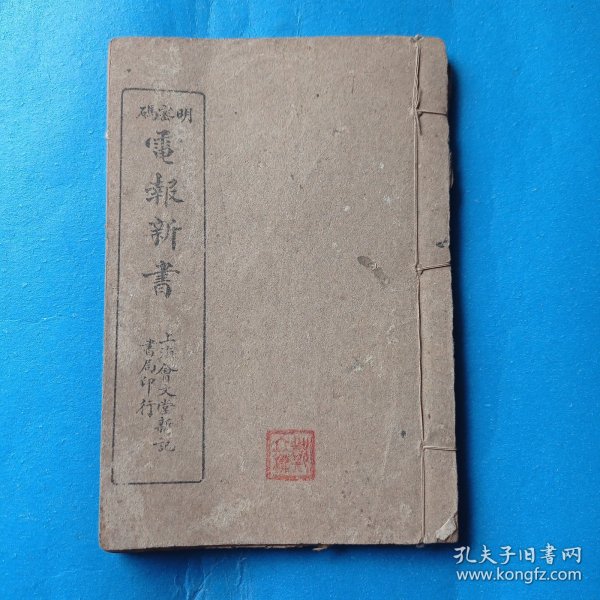 明密碼
電報新書
上海會文堂新記
書局印行
孔夫子旧書网
www.kongfz.com